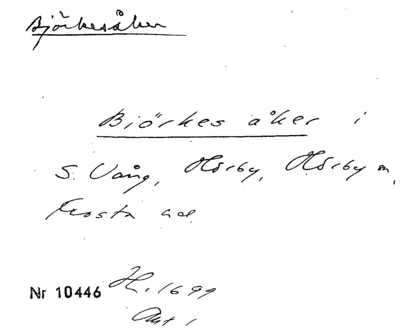 Björkesåker
Biörkes åker i
S. Vång, Hörby, Hörby sn,
Frosta hd
Nr 10446 H. 1699
Akt 1